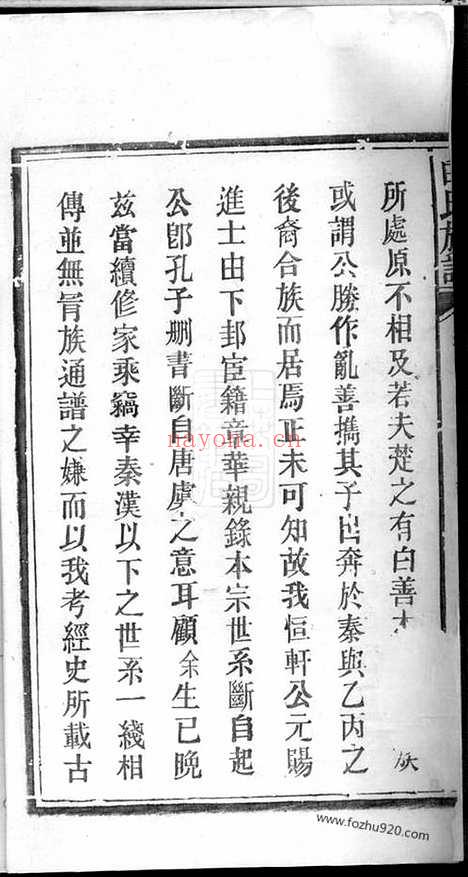 氏族譜
所處原不相及若夫楚之有白善
族
或謂公勝作亂善攜其子出奔於秦與乙丙之
後裔合族而居焉正未可知故我恒軒公元賜
進士由下邽宦籍章華親錄本宗世系斷自起
公卽孔子刪書斷自唐虞之意耳顧余生已晚
茲當續修家乘竊幸秦漢以下之世系一綫相
傳並無冐族通譜之嫌而以我考經史所載古
nayona.cn
www.fozhu920.com